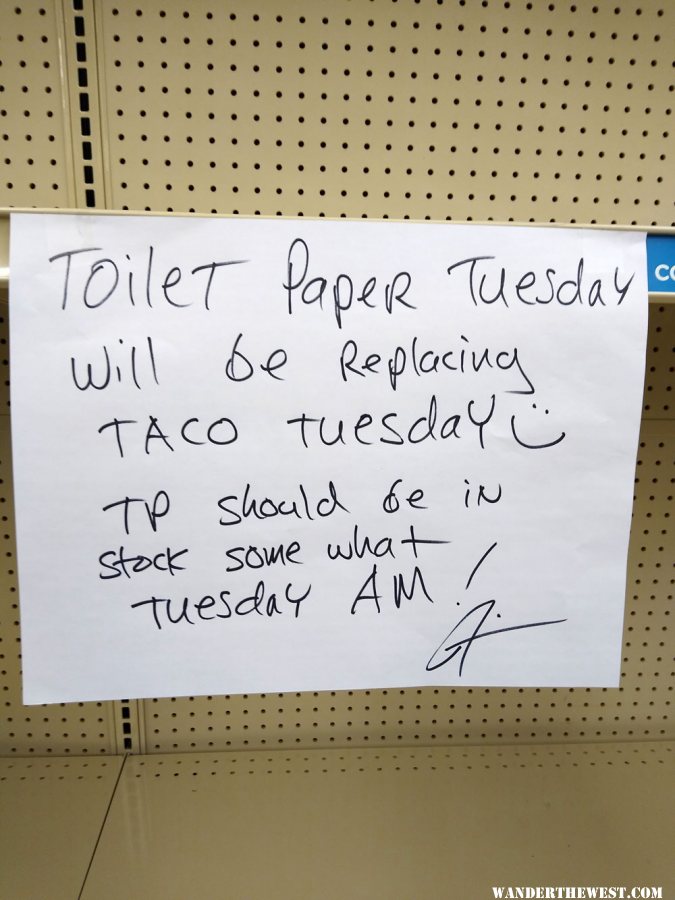 Toilet Paper Tuesday
will be Replacing
TACO Tuesday
TP should be in
stock some what
Tuesday AM!
WANDERTHEWEST.COM